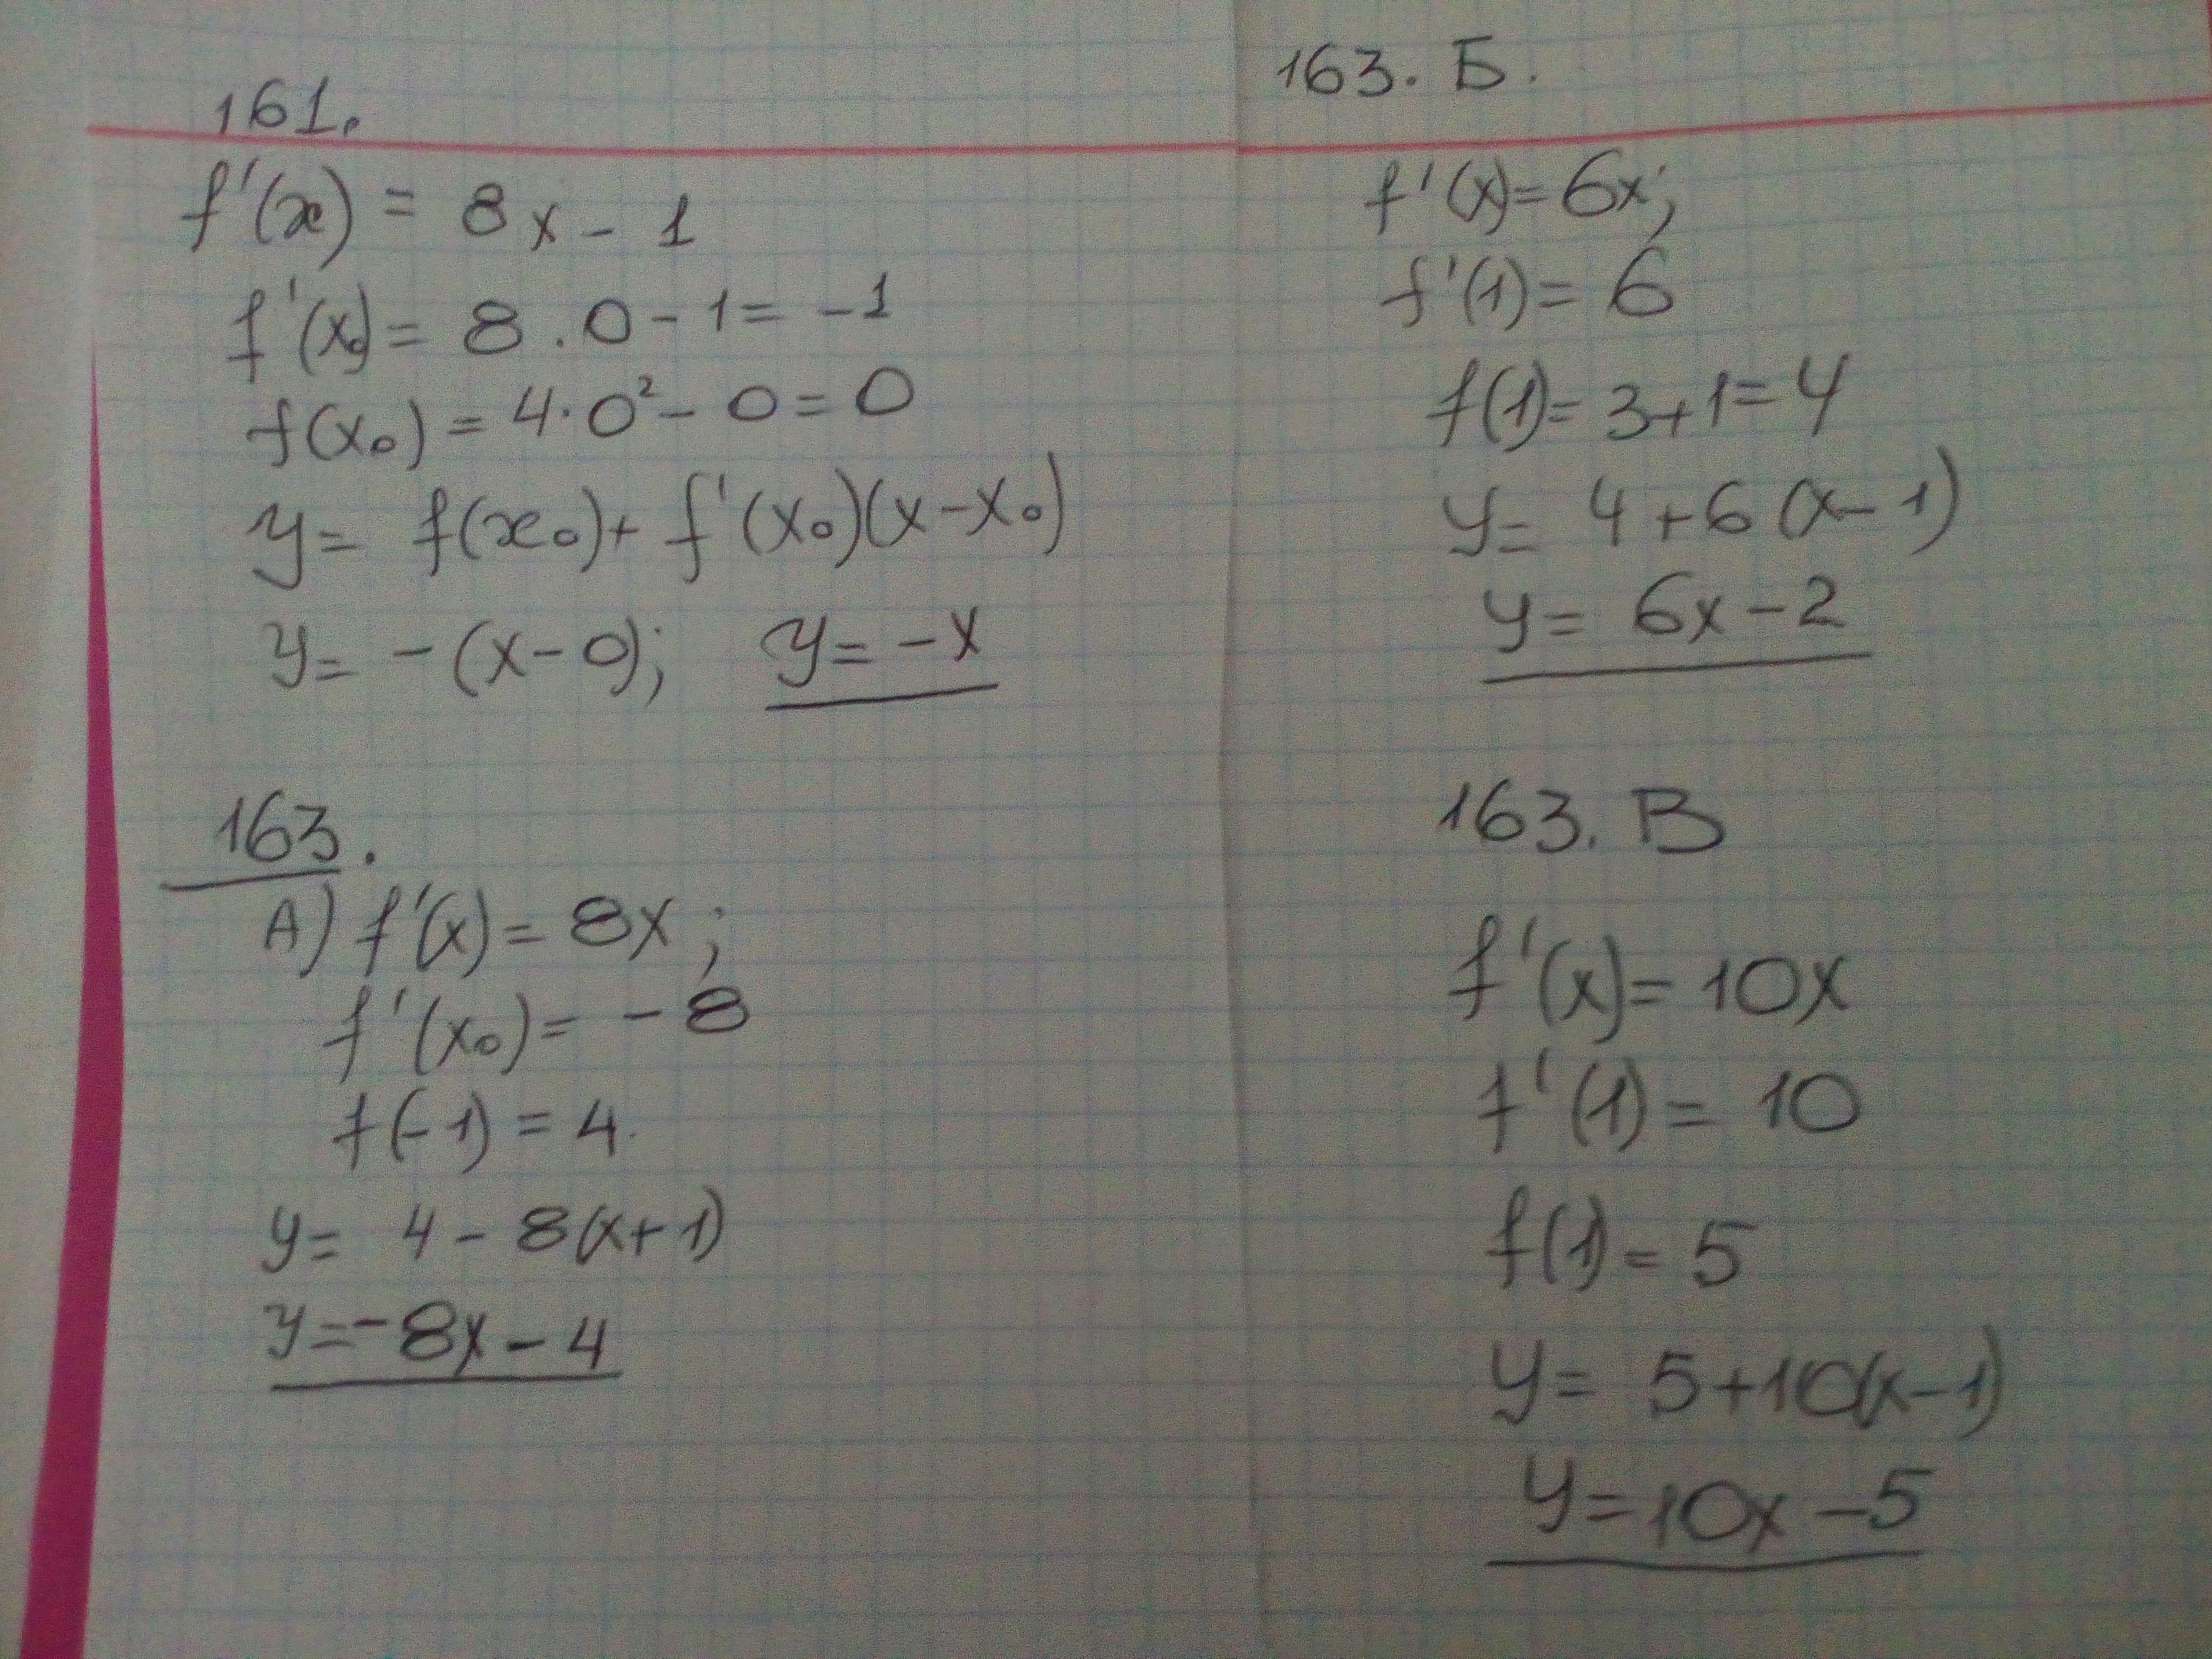 161.
f'(x) = 8x - 1
f'(x₀) = 8 · 0 - 1 = -1
f(x₀) = 4 · 0² - 0 = 0
y = f(x₀) + f'(x₀)(x - x₀)
y = -(x - 0); y = -x
163.
А) f'(x) = 8x;
f'(x₀) = -8
f(-1) = 4.
y = 4 - 8(x+1)
y = -8x - 4
163. Б.
f'(x) = 6x;
f'(1) = 6
f(1) = 3+1 = 4
y = 4 + 6(x-1)
y = 6x - 2
163. В
f'(x) = 10x
f'(1) = 10
f(1) = 5
y = 5+10(x-1)
y = 10x - 5